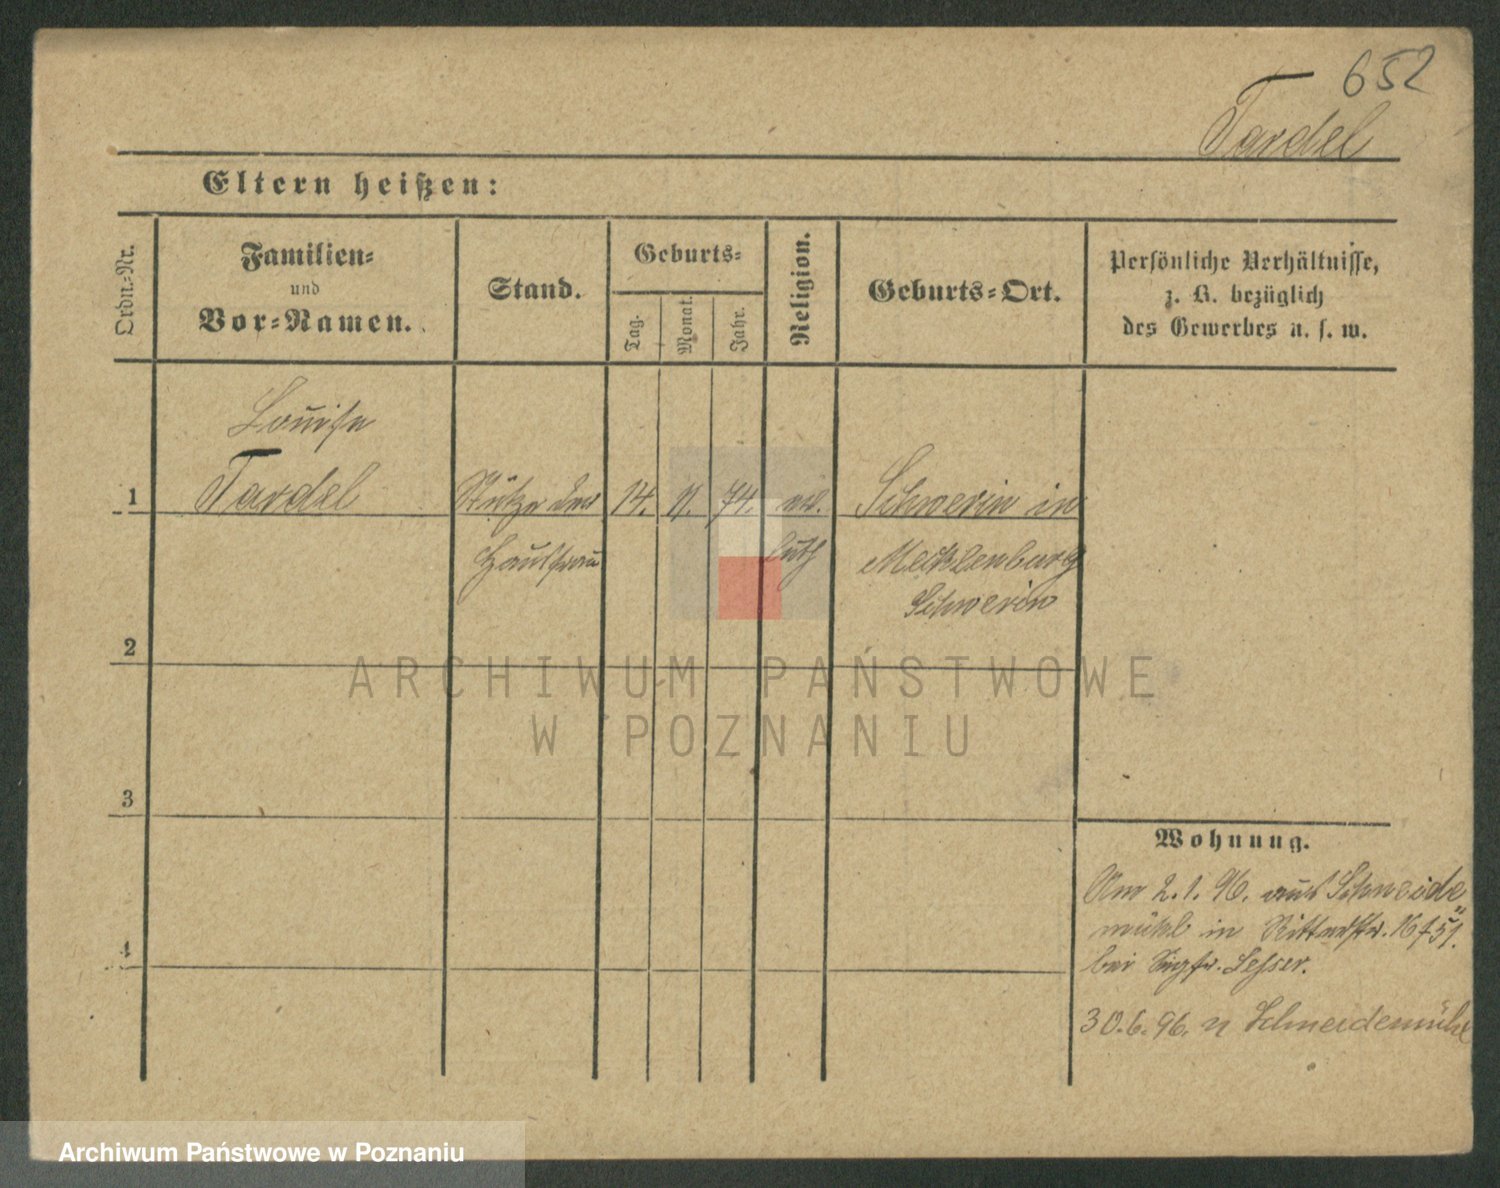 652
Tardel
Eltern heißen:
Ordn.-Nr.
Familien-
und
Vor-Namen.
Stand.
Geburts-
Tag.
Monat.
Jahr.
Religion.
Geburts-Ort.
Persönliche Verhältnisse,
z. B. bezüglich
des Gewerbes u. s. w.
Louise
1 Tardel Stütze der 14. 11. 74. ev. Schwerin in
Hausfrau luth Mecklenburg
Schwerin
2
ARCHIWUM PAŃSTWOWE
W POZNANIU
3
Wohnung.
Am 2.1.96. aus Schneide
mühl in Ritterstr. 16
bei Lesser.
4
30.6.96. n Schneidemühl
Archiwum Państwowe w Poznaniu